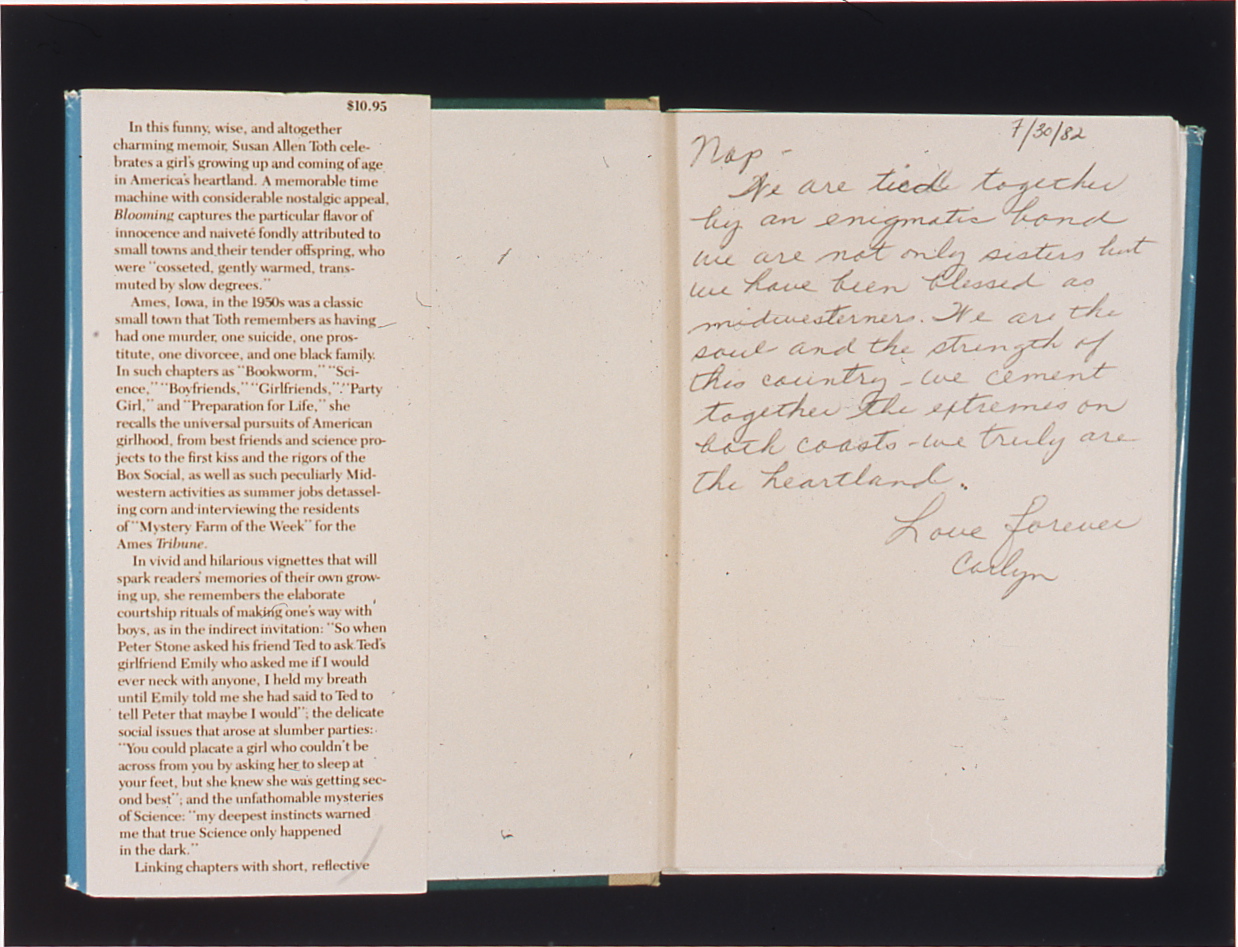 $10.95
In this funny, wise, and altogether
charming memoir, Susan Allen Toth cele-
brates a girl's growing up and coming of age
in America's heartland. A memorable time
machine with considerable nostalgic appeal,
Blooming captures the particular flavor of
innocence and naiveté fondly attributed to
small towns and their tender offspring, who
were "cosseted, gently warmed, trans-
muted by slow degrees."
Ames, Iowa, in the 1950s was a classic
small town that Toth remembers as having
had one murder, one suicide, one pros-
titute, one divorcee, and one black family.
In such chapters as "Bookworm," "Sci-
ence," "Boyfriends," "Girlfriends," "Party
Girl," and "Preparation for Life," she
recalls the universal pursuits of American
girlhood, from best friends and science pro-
jects to the first kiss and the rigors of the
Box Social, as well as such peculiarly Mid-
western activities as summer jobs detassel-
ing corn and interviewing the residents
of "Mystery Farm of the Week" for the
Ames Tribune.
In vivid and hilarious vignettes that will
spark readers' memories of their own grow-
ing up, she remembers the elaborate
courtship rituals of making one's way with
boys, as in the indirect invitation: "So when
Peter Stone asked his friend Ted to ask Ted's
girlfriend Emily who asked me if I would
ever neck with anyone, I held my breath
until Emily told me she had said to Ted to
tell Peter that maybe I would"; the delicate
social issues that arose at slumber parties:
"You could placate a girl who couldn't be
across from you by asking her to sleep at
your feet, but she knew she was getting sec-
ond best"; and the unfathomable mysteries
of Science: "my deepest instincts warned
me that true Science only happened
in the dark."
Linking chapters with short, reflective
7/30/82
Nap -
We are tied together
by an enigmatic bond
we are not only sisters but
we have been blessed as
midwesterners. We are the
soul and the strength of
this country - we cement
together the extremes on
both coasts - we truly are
the heartland.
Love forever
Carlyn